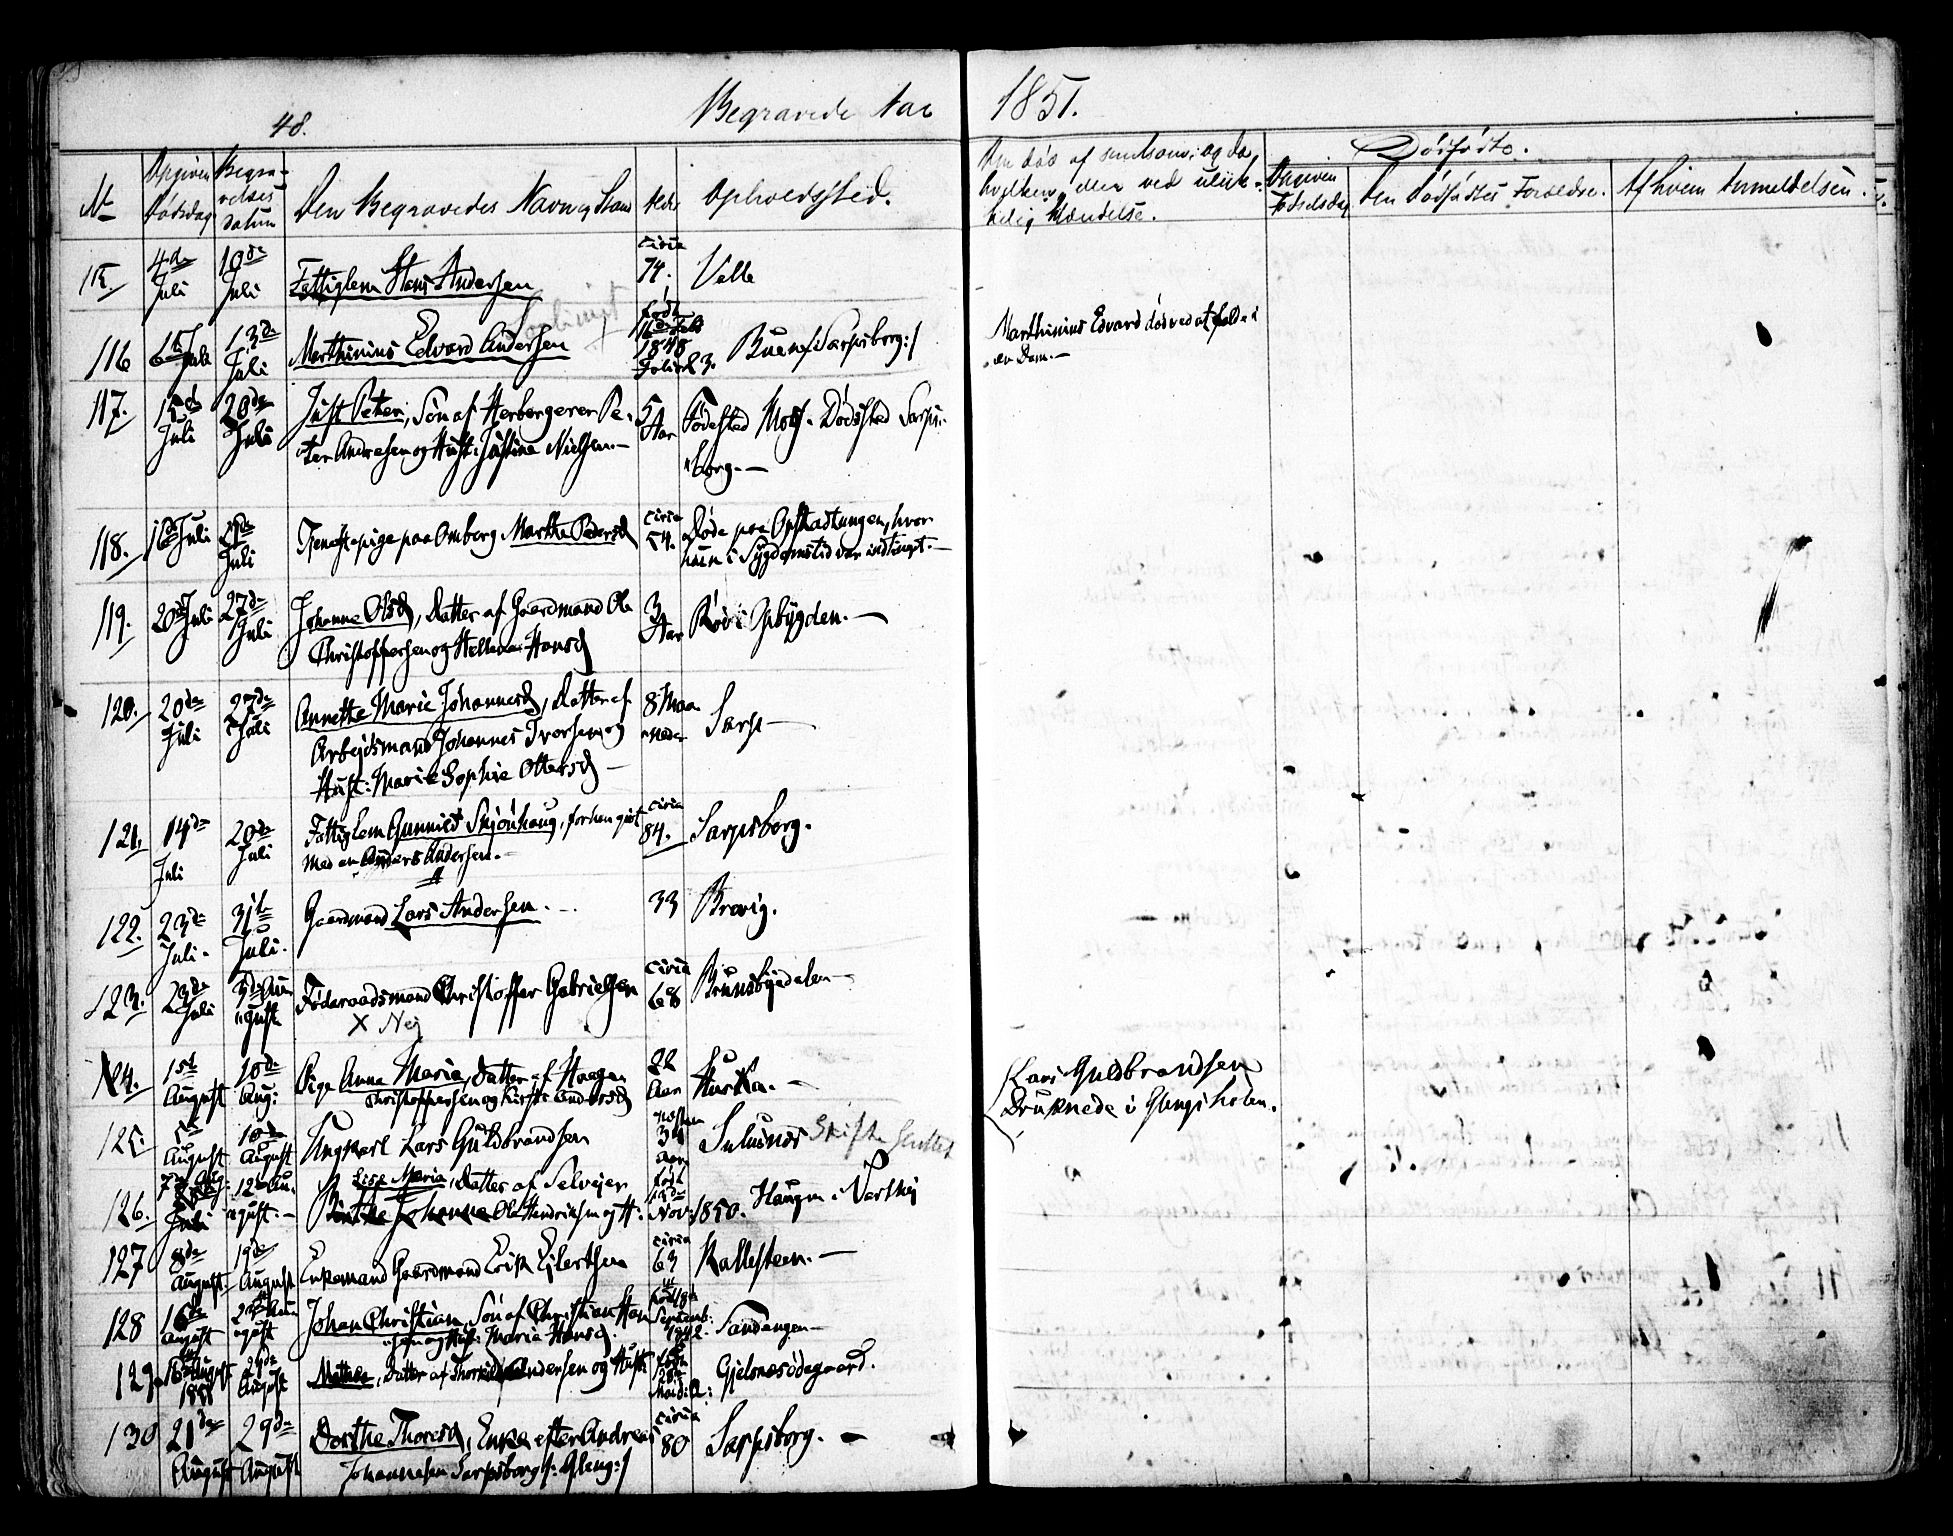 48.
Begravede Aar 1851.
№
Opgiven Dødsdag
Begravelses Datum
Den Begravedes Navn og Stand
Alder
Opholdssted.
Den død af smitsom; og da
hvilken, eller ved ulyk-
kelig Hændelse.
Dødfødte.
Opgiven Fødselsdag
Den Dødfødtes Forældre.
Af hvem Anmeldelsen
115. 4de Juli 10de Juli Fattiglem Hans Andersen circa 74. Valle
116 13de Juli Marthinius Edvard Andersen født 16de Feb 1848 Buen /: Sarpsborg :/
Marthinius Edvard død ved at falde i
en Dam.—
117. 15de Juli 20de Juli Just Peter, Søn af Herbergerer Pe- 5 Aar Fødested Moss. Dødssted Sarps-
ter Andresen og Hust: Justine Nielsen.— borg.—
118. 16de Juli Juli Tjenestepige paa Omberg Marthe Pedersd circa 54. Døde paa Opstadtungen, hvor
hun i Sygdomstid var indlagt.—
119. 20de Juli 27de Juli Johanne Olsd, Datter af Gaardmand Ole 3 Aar Rød i Opbygden.—
Christophersen og Hansd
120. 20de Juli 27de Juli Annette Marie Johannesd, Datter af 8 Maa- Sarp—
Arbejdsmand Johannes Iversen og neder
Hust: Marie Sophie Ottersd —
121. 14de Juli 20de Juli Fattiglem Gunnild Skjønhaug, forhen gift circa 84. Sarpsborg.
med en Anders Andersen.—
122. 23de Juli. 31te Juli. Gaardmand Lars Andersen. 33 Brevig.
123. 23de Juli 3de August Føderaadsmand Christoffer Gabrielsen circa 68 Brunsbydalen—
X Nej
124. 1ste August 10de Aug: Pige Anna Maria, Datter af Haagen 22 Aar Hustla.—
Christophersen og Kirsti Andersd
125. August 10de August Ungkarl Lars Guldbrandsen næsten Aar
Lars Guldbrandsen
Druknede i Glengsholen.
126. 7de Aug: Juli 12te August.— Lise Maria, Datter af Selveier født Nov: 1850. Haugen i Varteig
Birthe Johanne Ole Hendriksen og H:
127 8de August 19de August Enkemand Gaardmand Erik Eilertsen circa 63 Kallesteen.—
128 16de August August Johan Christian, Søn af Christian Han- født 18de Septemb: 1842. Sandengen—
sen og Hust: Maria Hansd.
129 August 1851 24de August Mathea, Datter af Thorkild Andersen og Hust: født Gjelsnæsødegaard.
130 21de August 29de August Dorthe Thoresd, Enke efter Andreas circa 80 Sarpsborg.—
Johannesen Sarpsborg /: Gleng :/